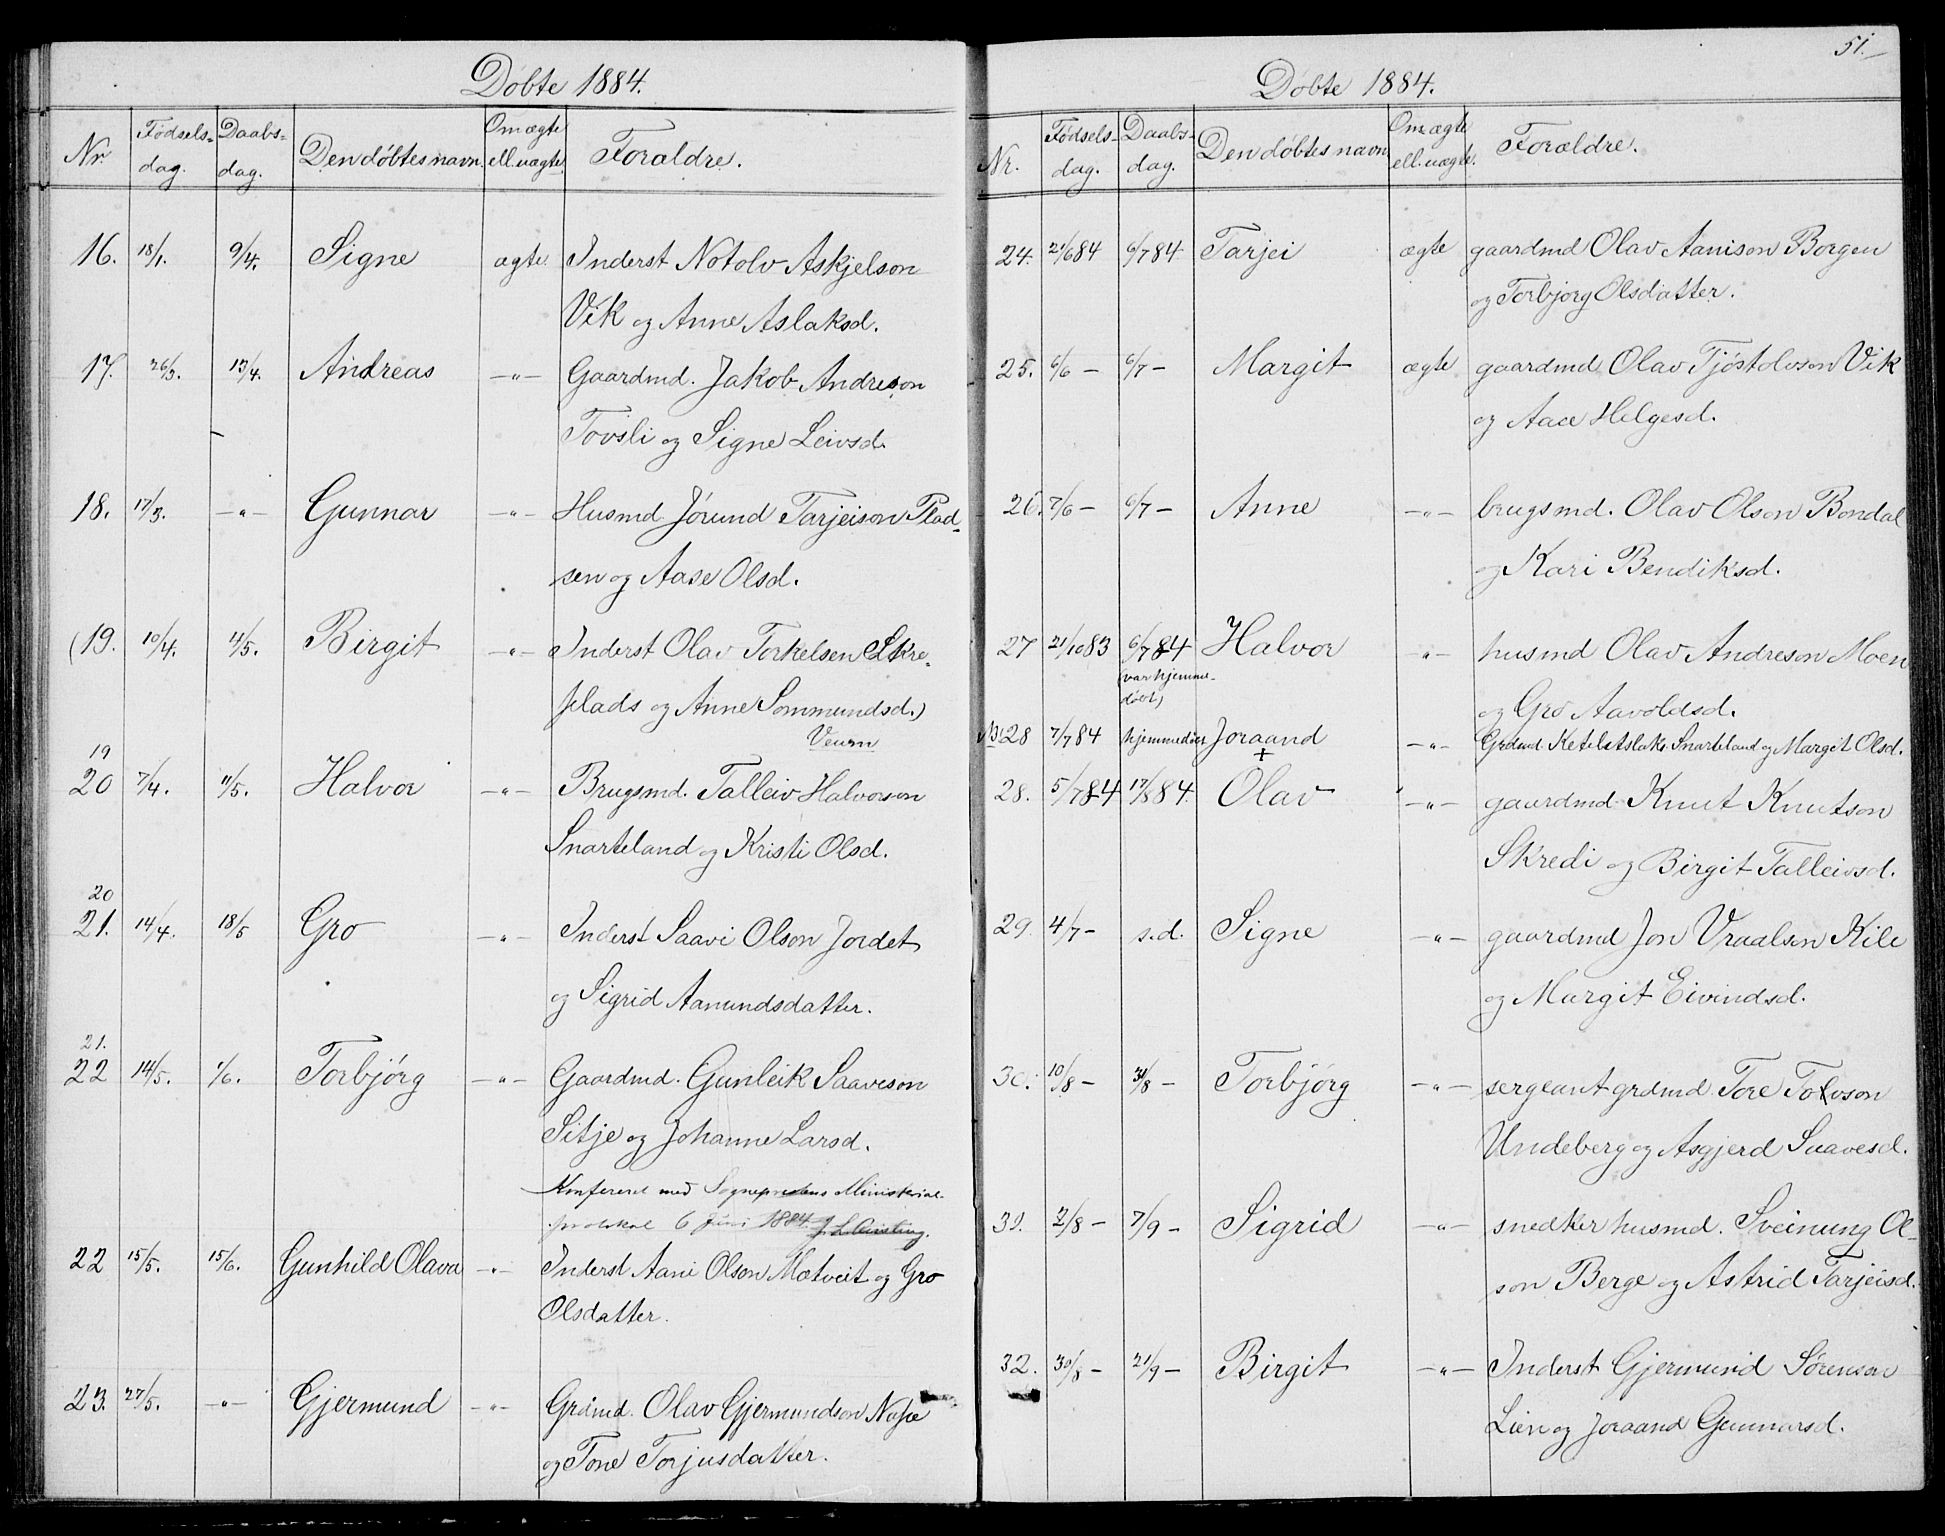 Döbte 1884.
Nr Fødsels-dag. Daabs-dag. Den döbtes navn. Om ægte ell. uægte. Forældre.
16. 18/1. 9/4. Signe ægte. Inderst Notolv Askjelson
Vik og Anne Aslaksd.
17. 26/3. 13/4. Andreas —"— Gaardmd. Jakob Andreson
Tovsli og Signe Leivsd.
18. 17/3. —"— Gunnar —"— Husmd Jörund Tarjeison Plad-
sen og Aase Olsd.
(19. 10/4. 4/5. Birgit —"— Inderst Olav Torkelsen Skre-
plads og Anne Sommundsd.)
Veum
19
20 7/4. 11/5. Halvor —"— Brugsmd. Talleiv Halvorson
Snarteland og Kristi Olsd.
20
21. 14/4. 18/5 Gro —"— Inderst Saavi Olson Jordet
og Sigrid Aamundsdatter.
21.
22 14/5. 1/6. Torbjörg —"— Gaardmd. Gunleik Saaveson
Sitje og Johanne Larsd.
Konfereret med Sogneprestens Ministerial-
protokol 6 Juni 1884.
22 15/5. 15/6. Gunhild Olava —"— Inderst Aani Olson Motveit og Gro
Olsdatter.
23. 27/5. —"— Gjermund —"— Grdmd. Olav Gjermundson Nape
og Tone Torjusdatter.
51.
Döbte 1884.
Nr. Fødsels-dag. Daabs-dag. Den döbtes navn Om ægte ell. uægte. Forældre.
24. 21/6 84 6/7 84 Tarjei ægte gaardmd Olav Aanison Borgen
og Torbjorg Olsdatter.
25. 6/6 — 6/7 — Margit ægte gaardmd Olav Tjöstolvson Vik
og Aace Helgesd.
26. 7/6 — 6/7 — Anne —"— brugsmd. Olav Olson Bondal
og Kari Bendiksd.
27 21/10 83 6/7 84 Halvor —"— husmd Olav Andreson Moen
(var hjemme-
döbt)
og Gro Aavoldsd.
28 7/7 84 hjemmedöbt Joraand —"— Grdmd. Ketil Aslaks. Snarteland og Margit Olsd.
+
28. 5/7 84 17/8 84. Olav —"— gaardmd Knut Knutson
Skredi og Birgit Talleivsd.
29. 4/7 — s.d. Signe —"— gaardmd Jon Vraalson Kile
og Margit Eivindsd.
30. 10/8 — 31/8 — Torbjörg —"— sergeant grdmd. Tore Tovson
Undeberg og Asgjerd Saavesd.
31. 2/8 — 7/9 — Sigrid —"— snedker husmd. Sveinung Ol-
son Berge og Astrid Tarjeisd.
32. 30/8 — 21/9 — Birgit —"— Inderst Gjermund Sörenson
Lien og Joraand Gunnarsd.